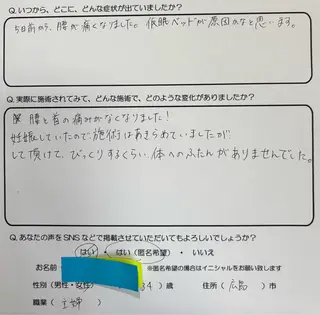 Q. いつから、どこに、どんな症状が出ていましたか？
5日前から、腰が痛くなりました。仮眠ベッドが原因かなと思います。
Q. 実際に施術されてみて、どんな施術で、どのような変化がありましたか？
腰と首の痛みがなくなりました！
妊娠していたので施術はあきらめていましたが
して頂けて、びっくりするくらい、体へのふたんがありませんでした。
Q. あなたの声をSNSなどで掲載させていただいてもよろしいでしょうか？
はい ・ はい（匿名希望） ・ いいえ
お名前 ※匿名希望の場合はイニシャルをお願い致します
性別（男性・女性） 34 ）歳 住所（ 広島 ）市
職業（ 主婦 ）